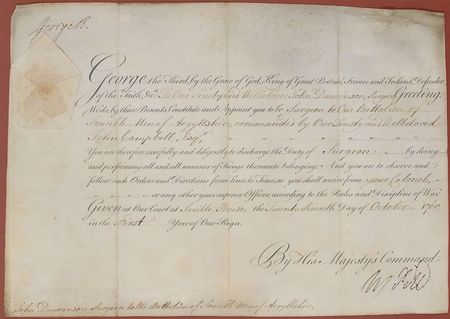 George R.
George the Third by the Grace of God, King of Great Britain, France and Ireland, Defender
of the Faith, &c. To Our Trusty and Wellbeloved John Duncanson, Surgeon Greeting.
We do by these Presents, Constitute and Appoint you to be Surgeon to Our Battalion of
Fencible Men of Argyllshire, commanded by Our Trusty and Wellbeloved
John Campbell, Esqr.
You are therefore carefully and diligently to discharge the Duty of Surgeon by doing
and performing all and all manner of things thereunto belonging. And you are to observe and
follow such Orders and Directions from time to time, as you shall receive from your Colonel,
or any other your superior Officer, according to the Rules and Discipline of War.
Given at Our Court at Saville House the Twenty Seventh Day of October 1760
in the First Year of Our Reign.
By His Majesty's Command
W Pitt
John Duncanson Surgeon to the Battalion of Fencible Men of Argyllshire